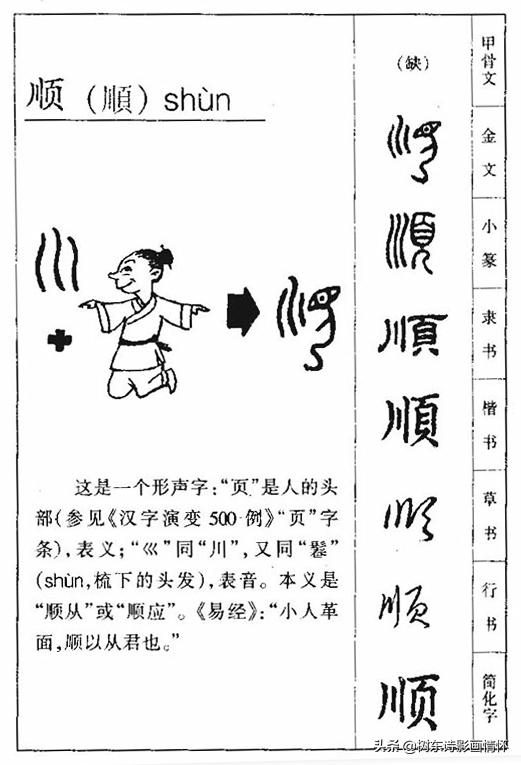 顺（順）shùn
这是一个形声字：“页”是人的头
部（参见《汉字演变500例》“页”字
条），表义；“巛”同“川”，又同“鬊”
（shùn，梳下的头发），表音。本义是
“顺从”或“顺应”。《易经》：“小人革
面，顺以从君也。”
（缺）
甲骨文
順
金文
順
小篆
順
隶书
順
楷书
顺
草书
顺
行书
顺
简化字
头条 @树东诗影画情怀